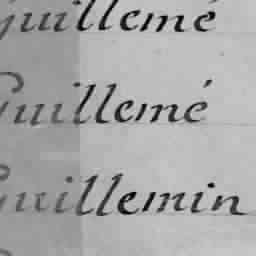 Guillemé
Guillemé
Guillemin